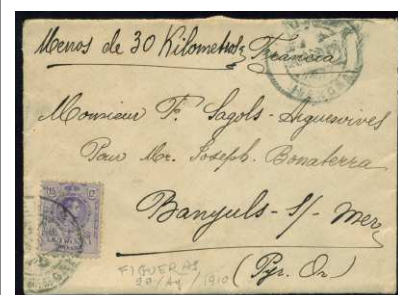 Menos de 30 Kilometros, Francia
Monsieur F. Sagols-Aiguesvives
Pour Mr. Joseph Bonaterra
Banyuls-S/-Mer
15 C.
FIGUERAS
(Pyr. Or)
1910